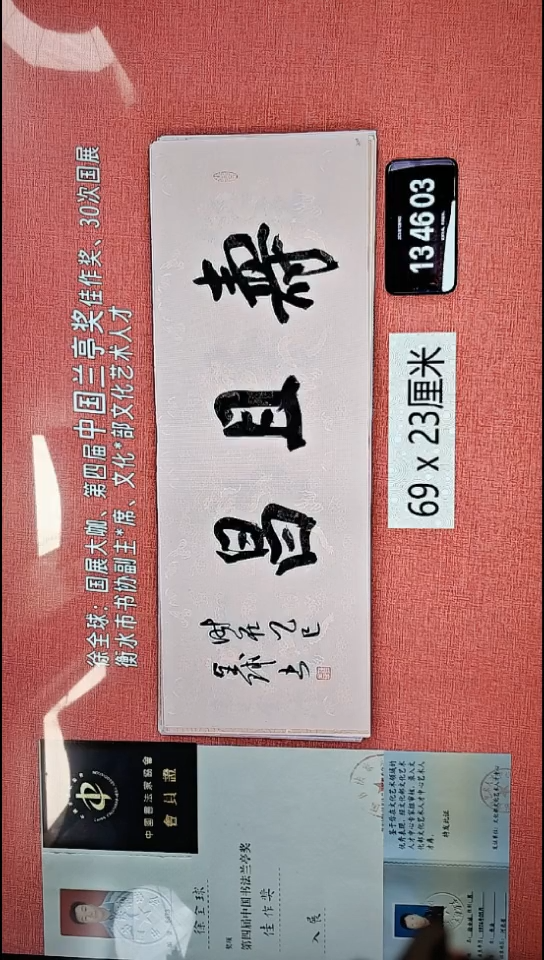 徐全球：国展大咖、第四届中国兰亭奖佳作奖、30次国展
衡水市书协副主*席、文化*部文化艺术人才
壽且昌
時在乙巳
全球书
13 46 03
69 x 23厘米
中國書法家協會
會員證
徐全球
第四届中国书法兰亭奖
佳作奖
入展
特发此证